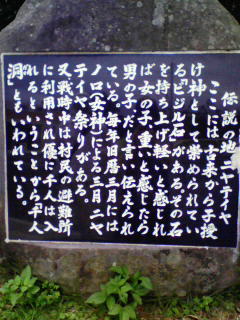 伝説の地 ニヤテイヤ
ここには、古来から子授
け神として崇められてい
る「ビジル石」がある。その石
を持ち上げ軽いと感じれ
ば女の子、重いと感じたら
男の子だと言い伝えられ
ている。毎年旧暦三月には
ノロ(女神)による三月ニヤ
テイヤ祭りがある。
又戦時中は村民の避難所
に利用され優に千人は入
れるということから「千人
洞」ともいわれている。